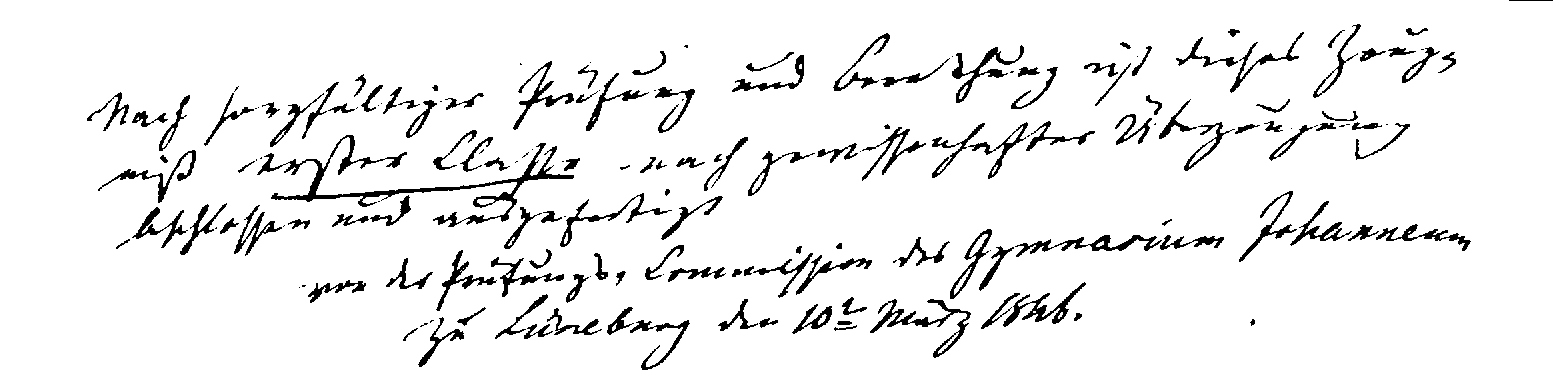 Nach sorgfältiger Prüfung und Berathung ist dieses Zeug-
niß erster Classe nach gewissenhafter Überzeugung
beschlossen und ausgefertigt
von der Prüfungs-Commission des Gymnasium Johanneum
zu Lüneburg den 10t März 1846.